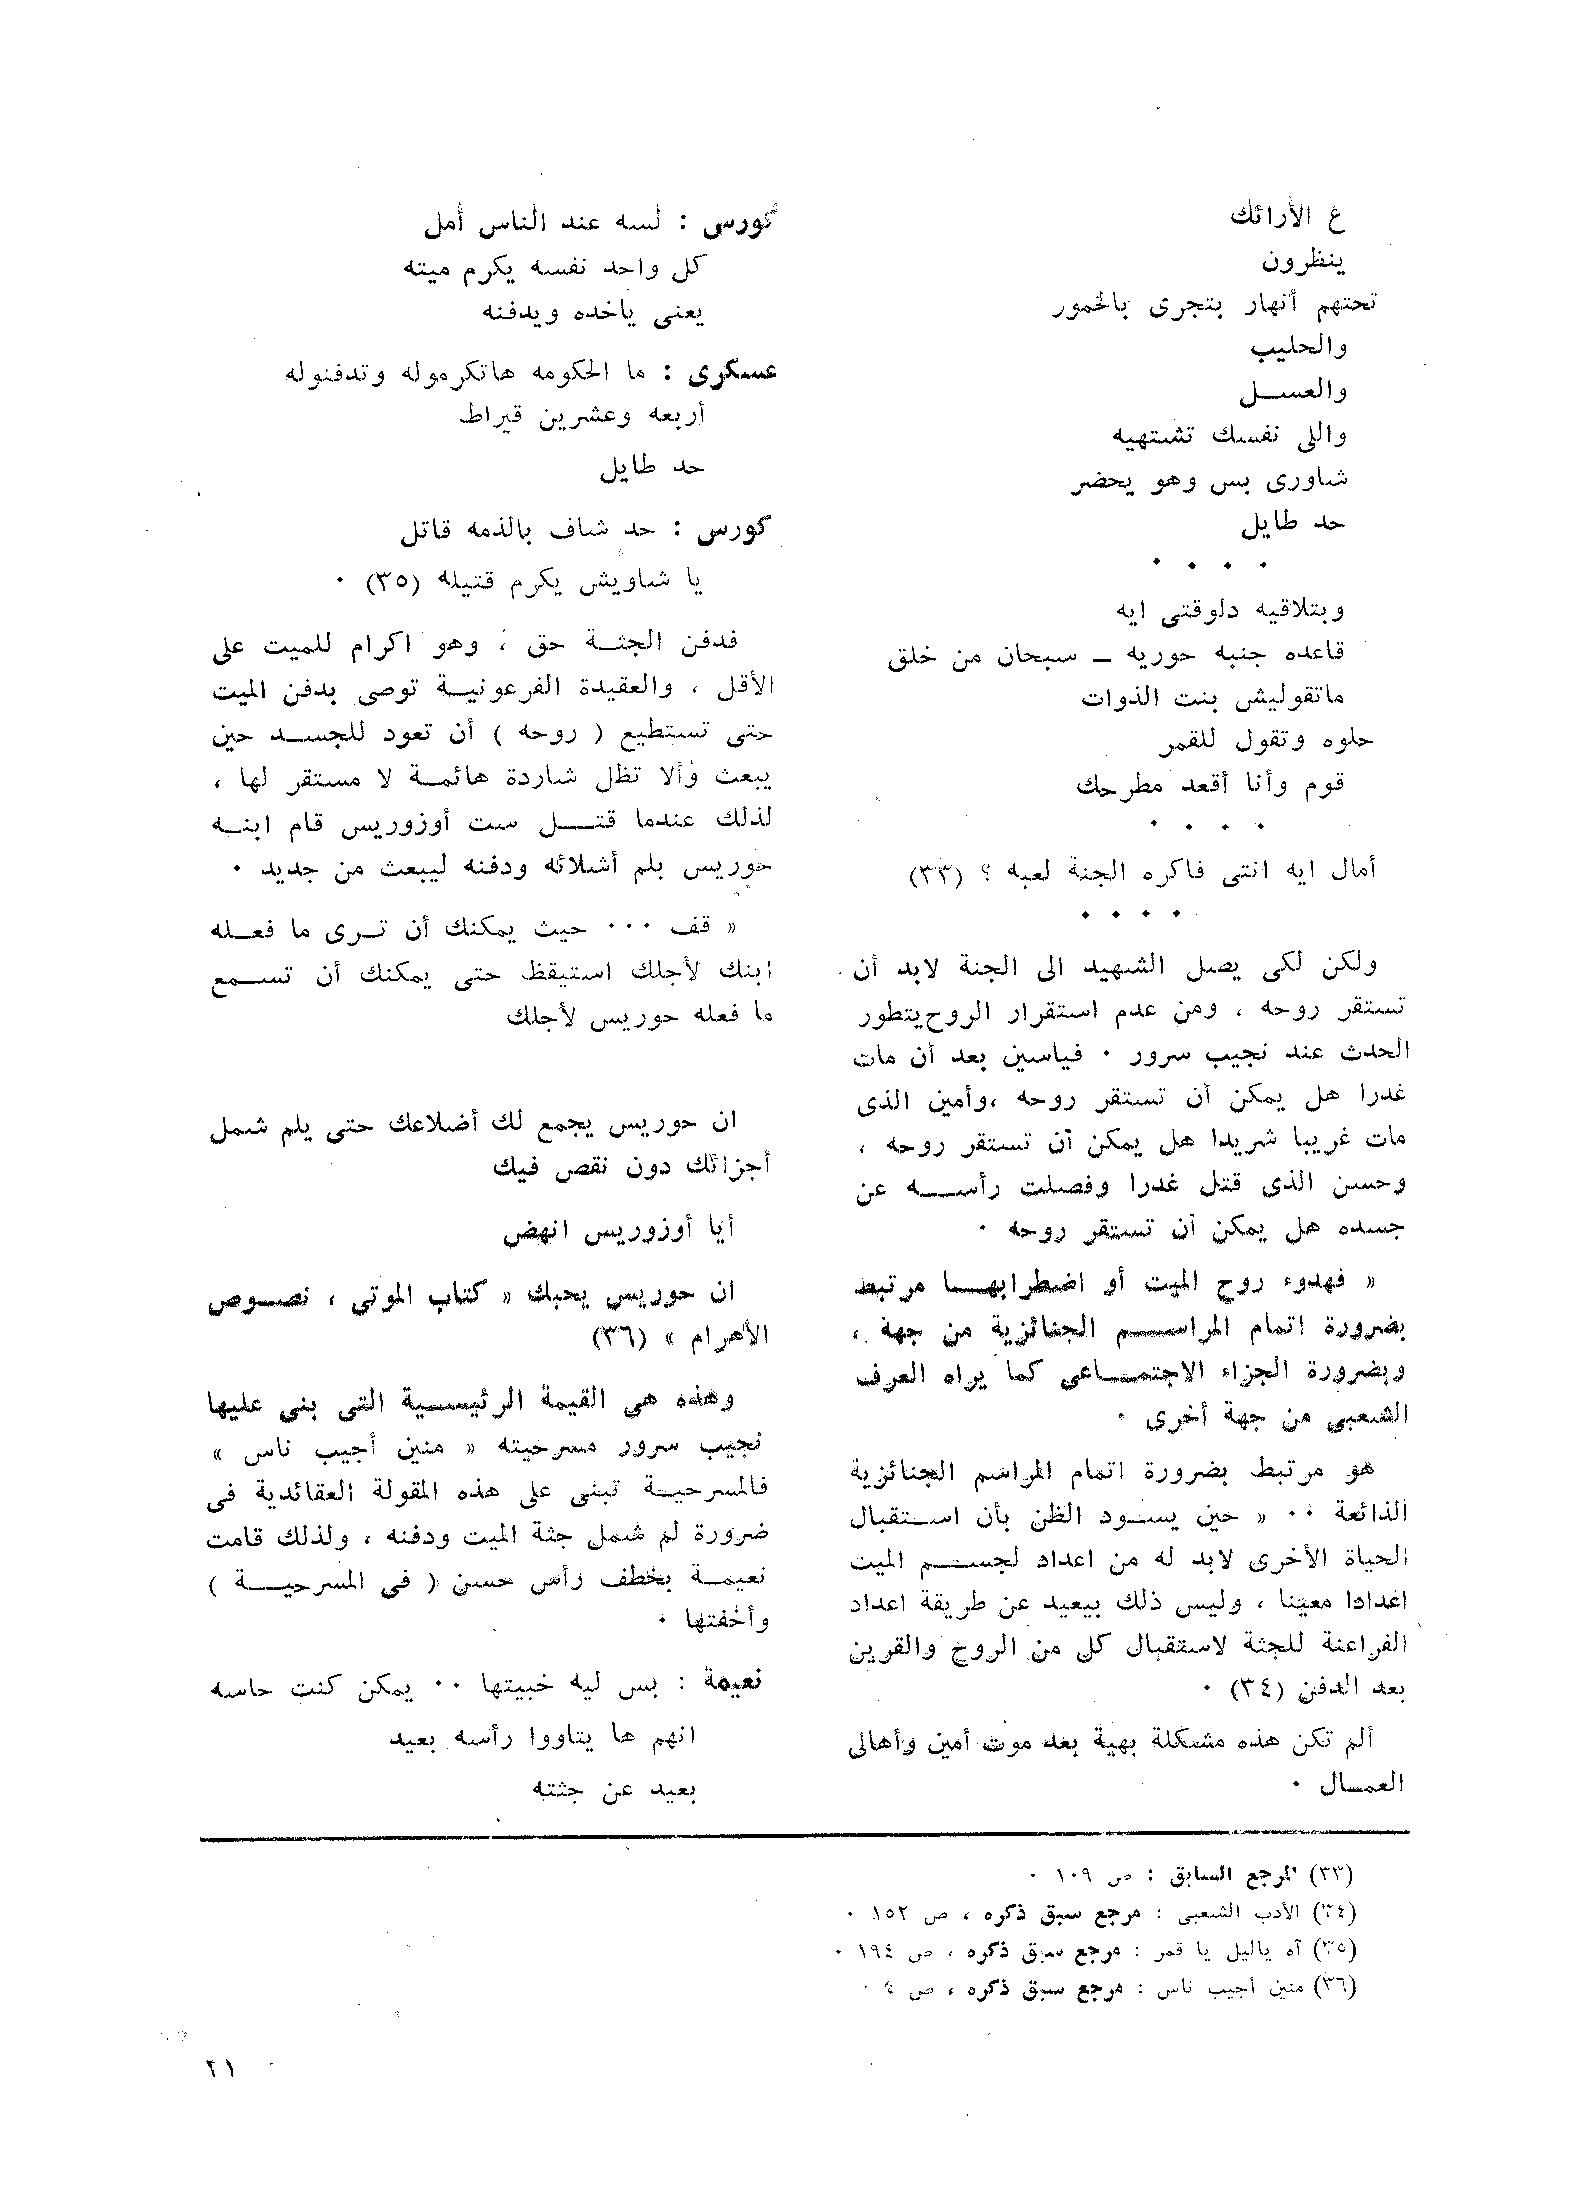 ع الأرائك
ينظرون
تحتهم أنهار بتجرى بالخمور
والحليب
والعسل
واللى نفسك تشتهيه
شاورى بس وهو يحضر
حد طايل
٠ ٠ ٠ ٠
وبتلاقيه دلوقتى ايه
قاعده جنبه حوريه ــ سبحان من خلق
ماتقوليش بنت الذوات
حلوه وتقول للقمر
قوم وأنا أقعد مطرحك
٠ ٠ ٠ ٠
أمال ايه انتى فاكره الجنة لعبه ؟ (٣٣)
٠ ٠ ٠ ٠
ولكن لكى يصل الشهيد الى الجنة لابد أن
تستقر روحه ، ومن عدم استقرار الروح يتطور
الحدث عند نجيب سرور ٠ فياسين بعد أن مات
غدرا هل يمكن أن تستقر روحه ،وأمين الذى
مات غريبا شريدا هل يمكن أن تستقر روحه ،
وحسن الذى قتل غدرا وفصلت رأسه عن
جسده هل يمكن أن تستقر روحه ٠
« فهدوء روح الميت أو اضطرابها مرتبط
بضرورة اتمام المراسم الجنائزية من جهة ،
وبضرورة الجزاء الاجتماعى كما يراه العرف
الشعبى من جهة أخرى ٠
هو مرتبط بضرورة اتمام المراسم الجنائزية
الذائعة ٠٠ « حين يسود الظن بأن استقبال
الحياة الأخرى لابد له من اعداد لجسم الميت
اعدادا معينا ، وليس ذلك ببعيد عن طريقة اعداد
الفراعنة للجثة لاستقبال كل من الروح والقرين
بعد الدفن (٣٤) ٠
ألم تكن هذه مشكلة بهية بعد موت أمين وأهالى
العمال ٠
كورس : لسه عند الناس أمل
كل واحد نفسه يكرم ميته
يعنى ياخده ويدفنه
عسكرى : ما الحكومه هاتكرموله وتدفنوله
أربعه وعشرين قيراط
حد طايل
كورس : حد شاف بالذمه قاتل
يا شاويش يكرم قتيله (٣٥) ٠
فدفن الجثة حق ، وهو اكرام للميت على
الأقل ، والعقيدة الفرعونية توصى بدفن الميت
حتى تستطيع ( روحه ) أن تعود للجسد حين
يبعث وألا تظل شاردة هائمة لا مستقر لها ،
لذلك عندما قتل ست أوزوريس قام ابنه
حوريس بلم أشلائه ودفنه ليبعث من جديد ٠
« قف ٠٠٠ حيث يمكنك أن ترى ما فعله
ابنك لأجلك استيقظ حتى يمكنك أن تسمع
ما فعله حوريس لأجلك
ان حوريس يجمع لك أضلاعك حتى يلم شمل
أجزائك دون نقص فيك
أيا أوزوريس انهض
ان حوريس يحبك « كتاب الموتى ، نصوص
الأهرام » (٣٦)
وهذه هى القيمة الرئيسية التى بنى عليها
نجيب سرور مسرحيته « منين أجيب ناس »
فالمسرحية تبنى على هذه المقولة العقائدية فى
ضرورة لم شمل جثة الميت ودفنه ، ولذلك قامت
نعيمة بخطف رأس حسن ( فى المسرحية )
وأخفتها ٠
نعيمة : بس ليه خبيتها ٠٠ يمكن كنت حاسه
انهم ها يتاووا رأسه بعيد
بعيد عن جثته
(٣٣) المرجع السابق : ص ١٠٩ ٠
(٣٤) الأدب الشعبى : مرجع سبق ذكره ، ص ١٥٢ ٠
(٣٥) آه ياليل يا قمر : مرجع سبق ذكره ، ص ١٩٤ ٠
(٣٦) منين أجيب ناس : مرجع سبق ذكره ، ص ٤ ٠
٢١